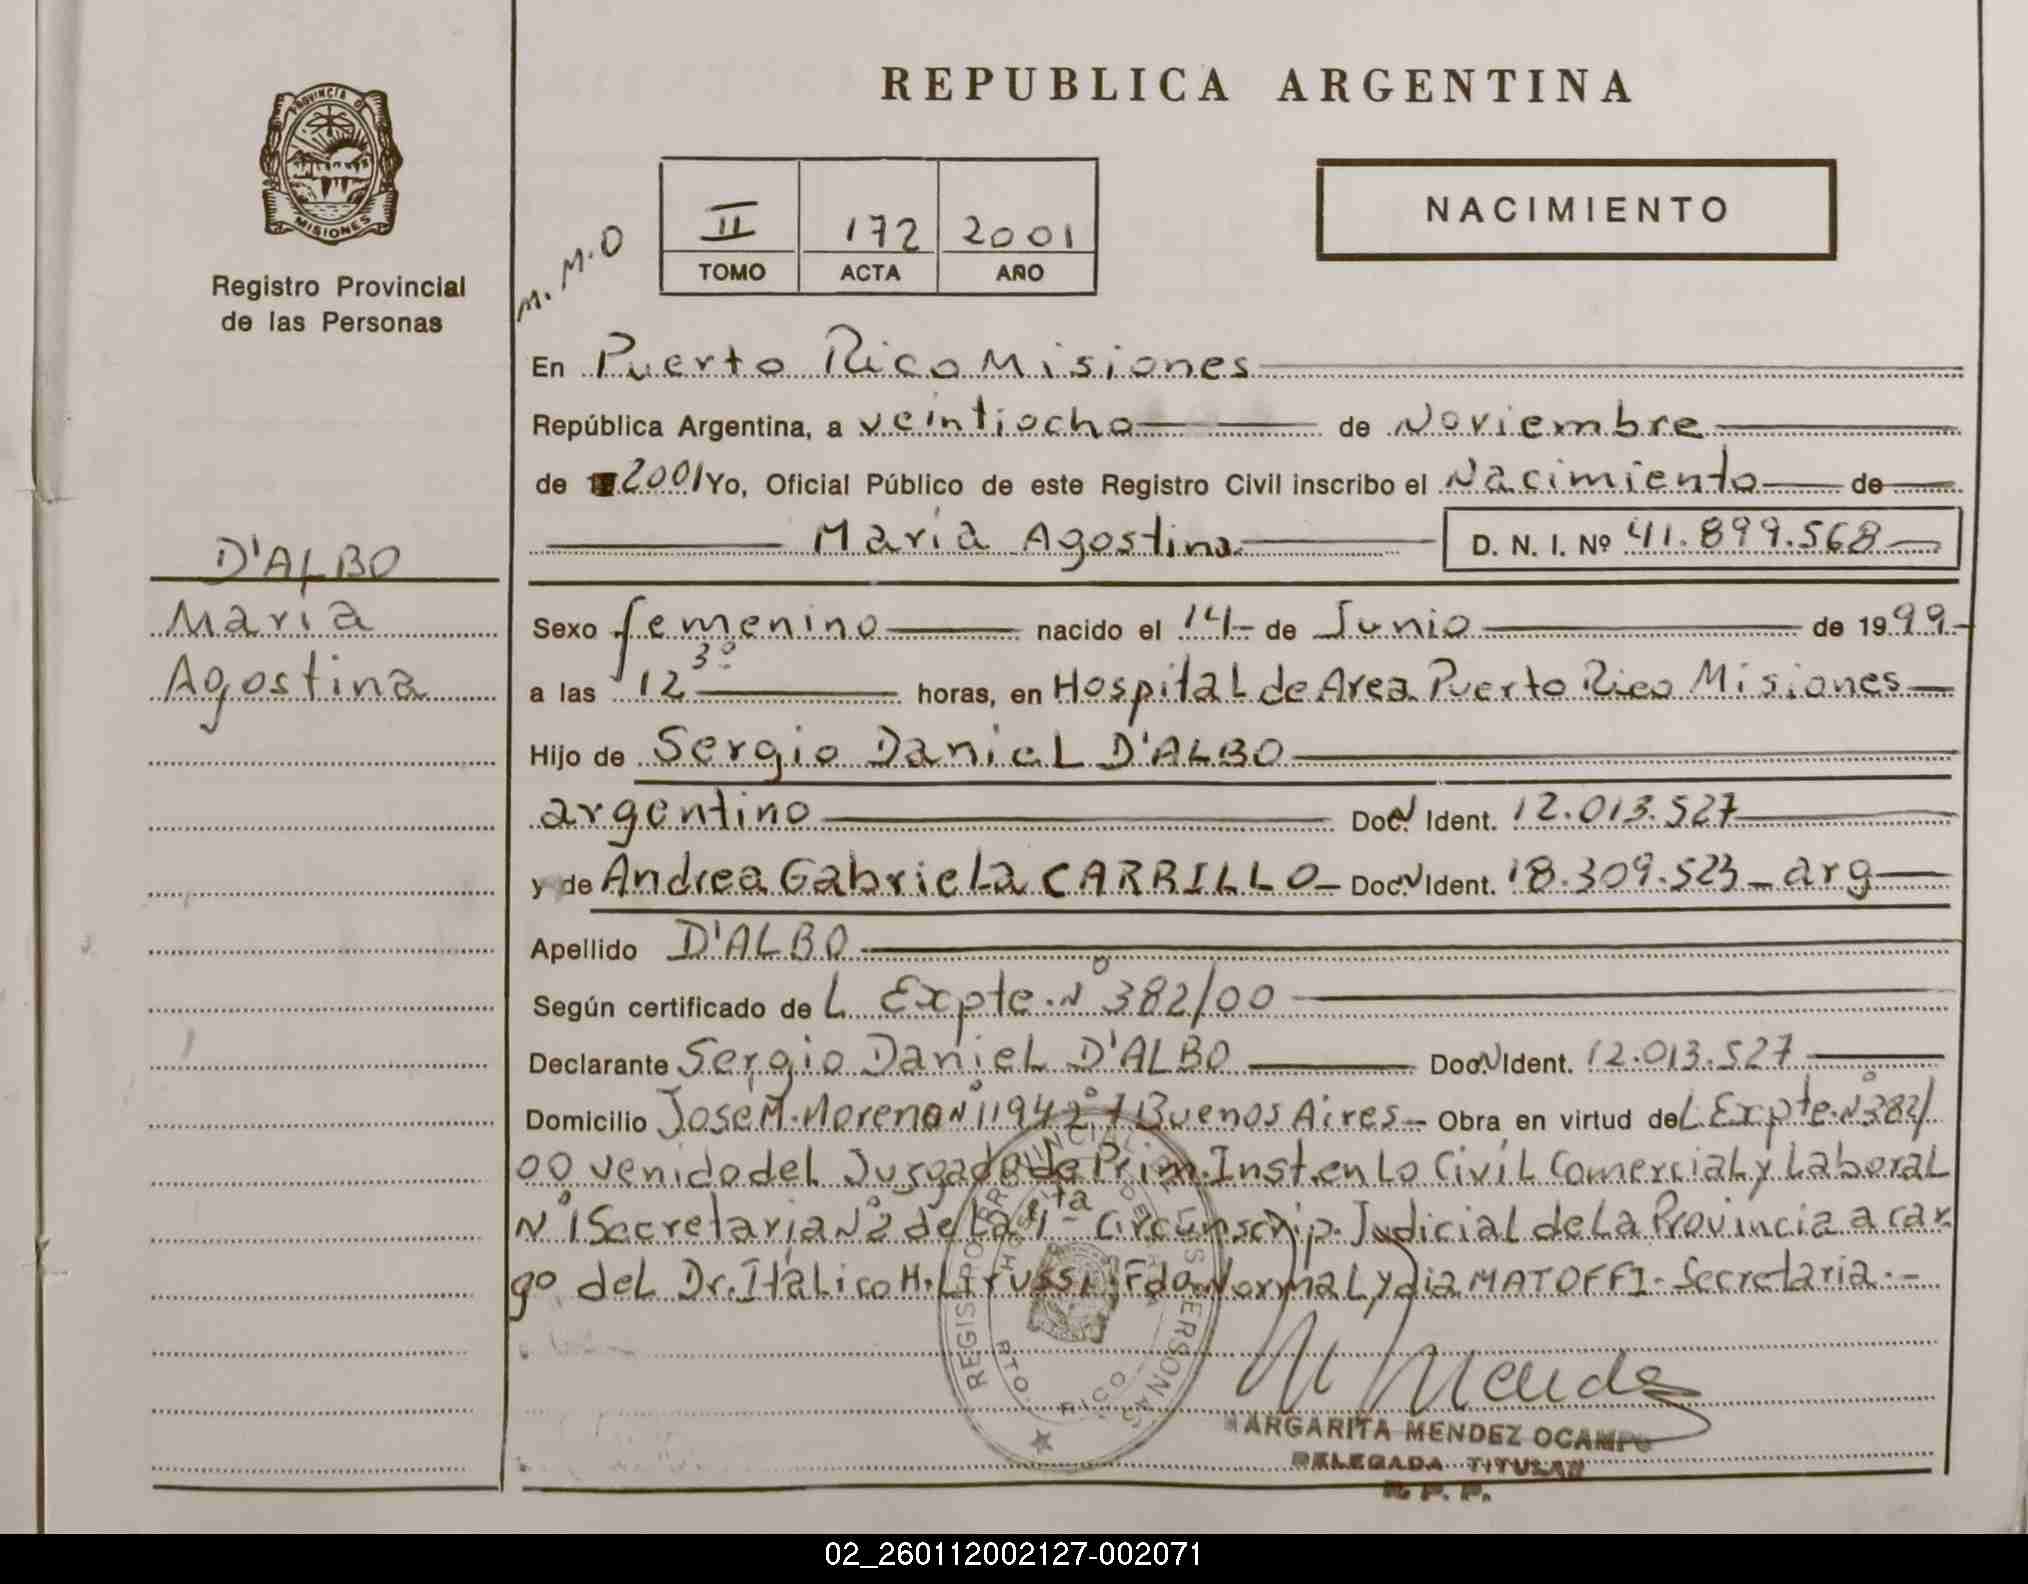 REPUBLICA ARGENTINA
PROVINCIA D
MISIONES
Registro Provincial
de las Personas
M. M. O
II 172 2001
TOMO ACTA AÑO
NACIMIENTO
En Puerto Rico Misiones
República Argentina, a veintiocho de Noviembre
de 2001 Yo, Oficial Público de este Registro Civil inscribo el Nacimiento de
María Agostina D. N. I. Nº 41.899.568
D'ALBO
María
Agostina
Sexo femenino nacido el 14 de Junio de 1999
a las 12 30 horas, en Hospital de Area Puerto Rico Misiones
Hijo de Sergio Daniel D'ALBO
argentino Doc. N Ident. 12.013.527
y de Andrea Gabriela CARRILLO Doc. N Ident. 18.309.523 arg
Apellido D'ALBO
Según certificado de L Expte. Nº 382/00
Declarante Sergio Daniel D'ALBO Doc. N Ident. 12.013.527
Domicilio José M. Moreno Nº Buenos Aires Obra en virtud del Expte. Nº 382/
00 venido del Juzgado de Prim. Inst. en Lo Civil Comercial y Laboral
Nº 1 Secretaria Nº 2 de La Circunscrip. Judicial de La Provincia a car
go del Dr. Itálico H. Fdo. Norma Lydia MATOFFI - Secretaria.-
REGISTRO PROVINCIAL DE LAS PERSONAS
M Mendez
MARGARITA MENDEZ OCAMPO
DELEGADA TITULAR
R. P. P.
02_260112002127-002071